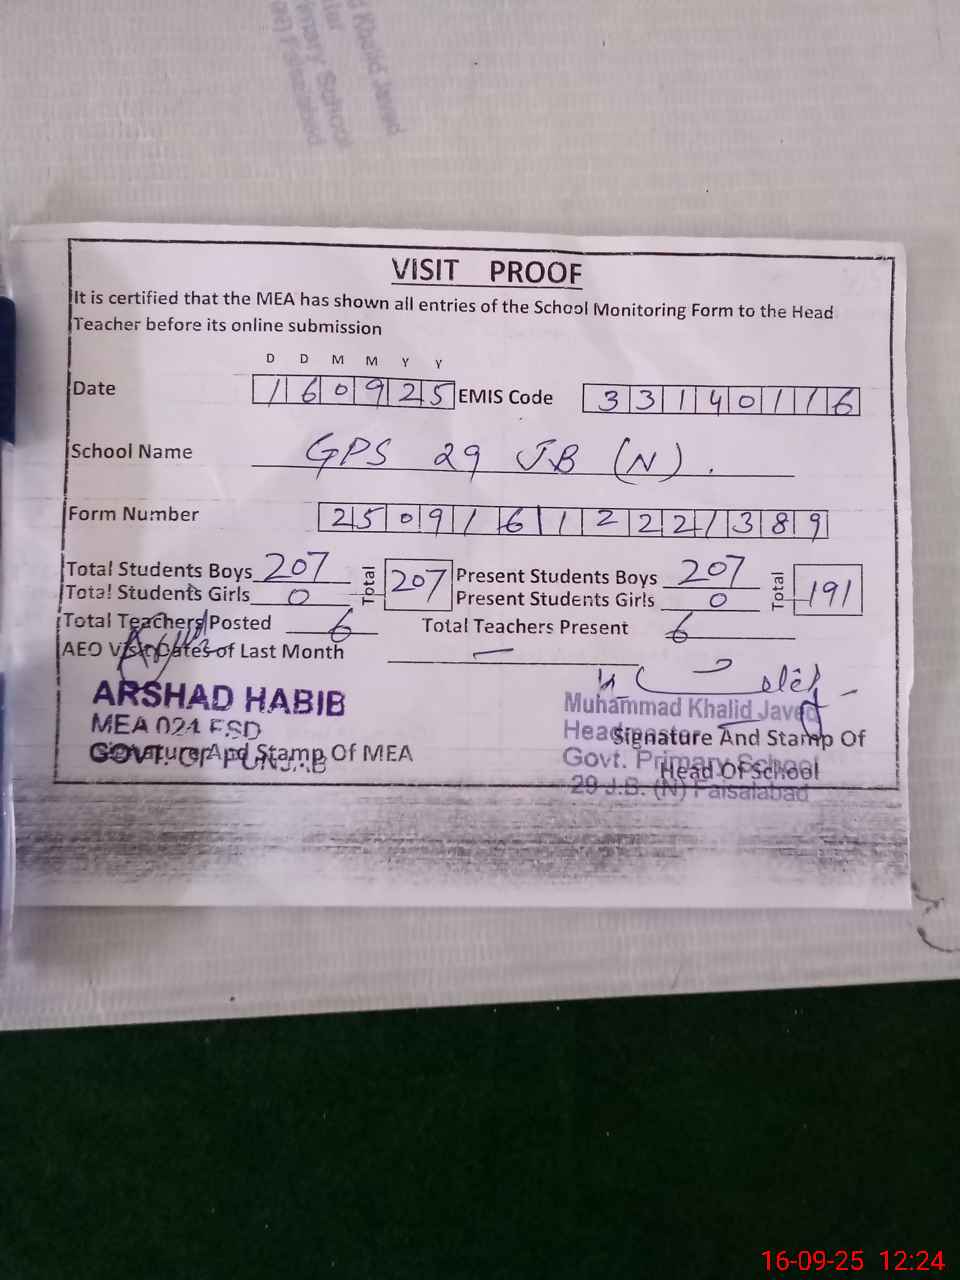 d Khalid Javed
mary School
N) Faisalabad
VISIT PROOF
It is certified that the MEA has shown all entries of the School Monitoring Form to the Head
Teacher before its online submission
D D M M Y Y
Date 160925 EMIS Code 33140116
School Name GPS 29 JB (N).
Form Number
Total Students Boys 207 Total 207 Present Students Boys 207 Total 191
Total Students Girls 0 Present Students Girls 0
Total Teachers Posted 6 Total Teachers Present 6
AEO Visit Dates of Last Month —
ARSHAD HABIB
MEA 021 FSD
GOVT. OF PUNJAB
Signature And Stamp Of MEA
Muhammad Khalid Javed
Headmaster
Govt. Primary School
29 J.B. (N) Faisalabad
Signature And Stamp Of
Head Of School
16-09-25 12:24